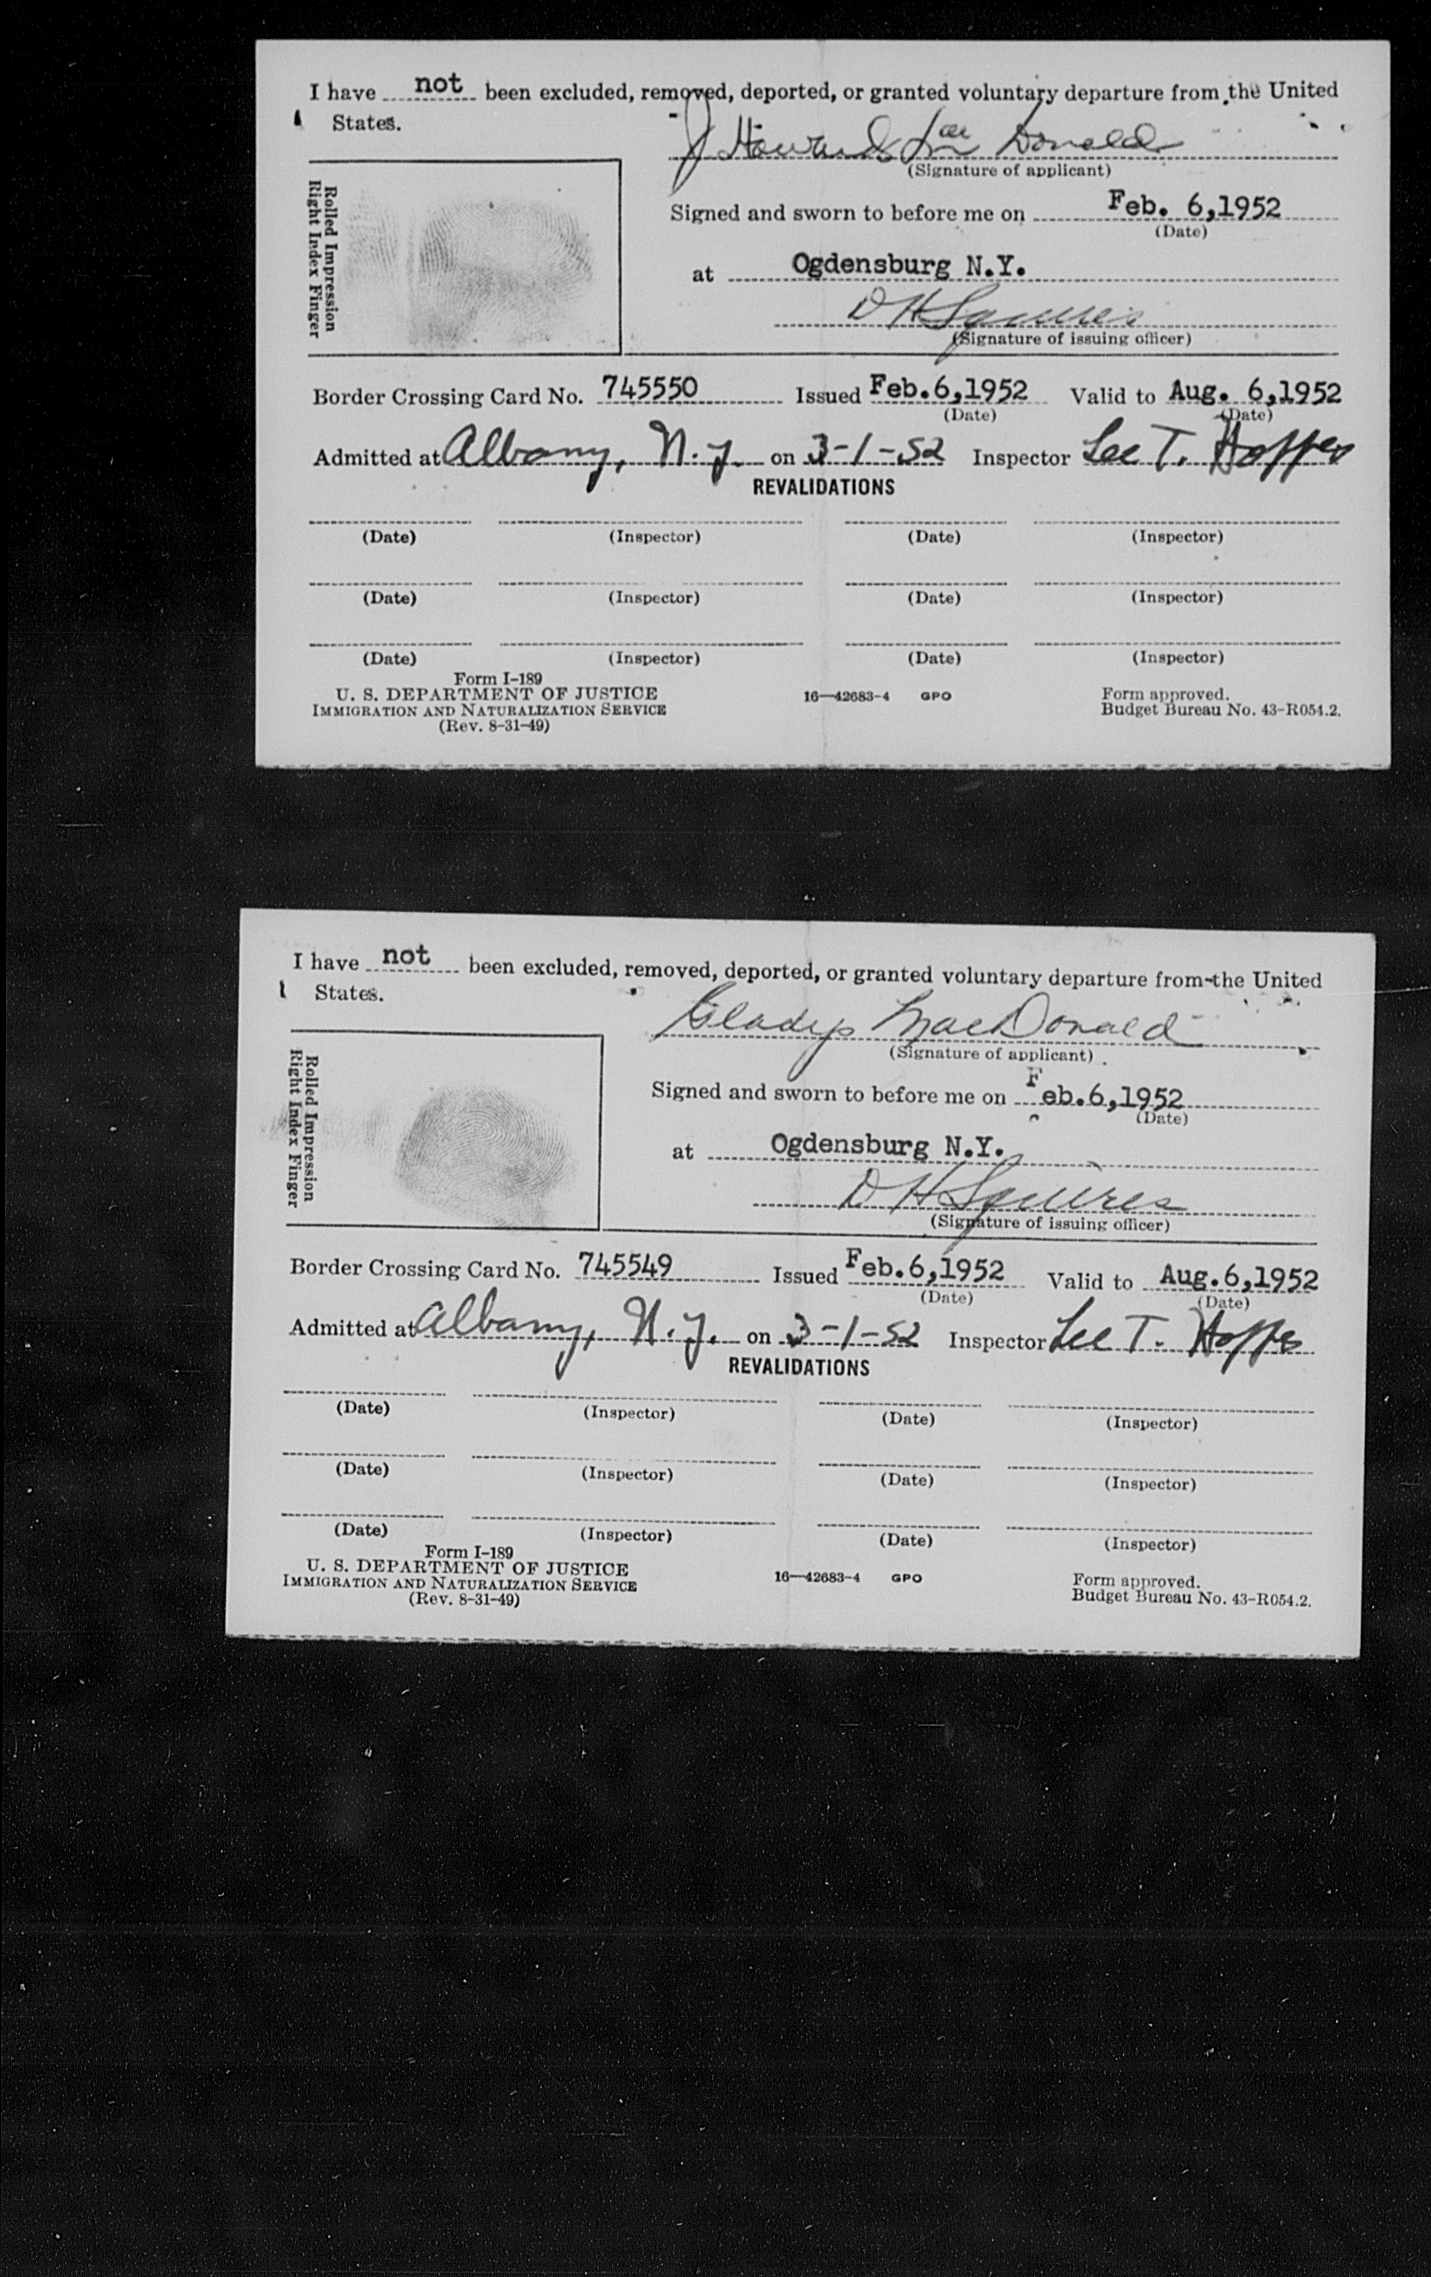 I have not been excluded, removed, deported, or granted voluntary departure from the United
States.
J Howard MacDonald
(Signature of applicant)
Rolled Impression
Right Index Finger
Signed and sworn to before me on Feb. 6,1952
(Date)
at Ogdensburg N.Y.
D H Squires
(Signature of issuing officer)
Border Crossing Card No. 745550 Issued Feb.6,1952 Valid to Aug. 6,1952
(Date) (Date)
Admitted at Albany, N.Y. on 3-1-52 Inspector Lee T.
REVALIDATIONS
(Date) (Inspector) (Date) (Inspector)
(Date) (Inspector) (Date) (Inspector)
(Date) (Inspector) (Date) (Inspector)
Form I-189
U. S. DEPARTMENT OF JUSTICE 16—42683-4 GPO Form approved.
IMMIGRATION AND NATURALIZATION SERVICE Budget Bureau No. 43-R054.2.
(Rev. 8-31-49)
I have not been excluded, removed, deported, or granted voluntary departure from the United
States.
Gladys MacDonald
(Signature of applicant)
Rolled Impression
Right Index Finger
Signed and sworn to before me on Feb.6,1952
(Date)
at Ogdensburg N.Y.
D H Squires
(Signature of issuing officer)
Border Crossing Card No. 745549 Issued Feb.6,1952 Valid to Aug.6,1952
(Date) (Date)
Admitted at Albany, N.Y. on 3-1-52 Inspector Lee T.
REVALIDATIONS
(Date) (Inspector) (Date) (Inspector)
(Date) (Inspector) (Date) (Inspector)
(Date) (Inspector) (Date) (Inspector)
Form I-189
U. S. DEPARTMENT OF JUSTICE 16—42683-4 GPO Form approved.
IMMIGRATION AND NATURALIZATION SERVICE Budget Bureau No. 43-R054.2.
(Rev. 8-31-49)